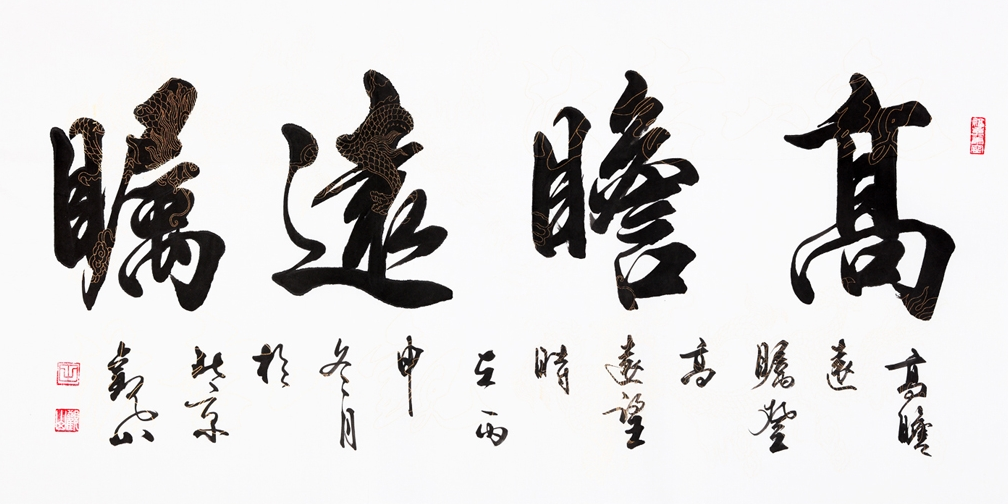 髙瞻遠矚
高瞻
遠
矚登
高
遠望
時
在丙
申
冬月
於
北京
山